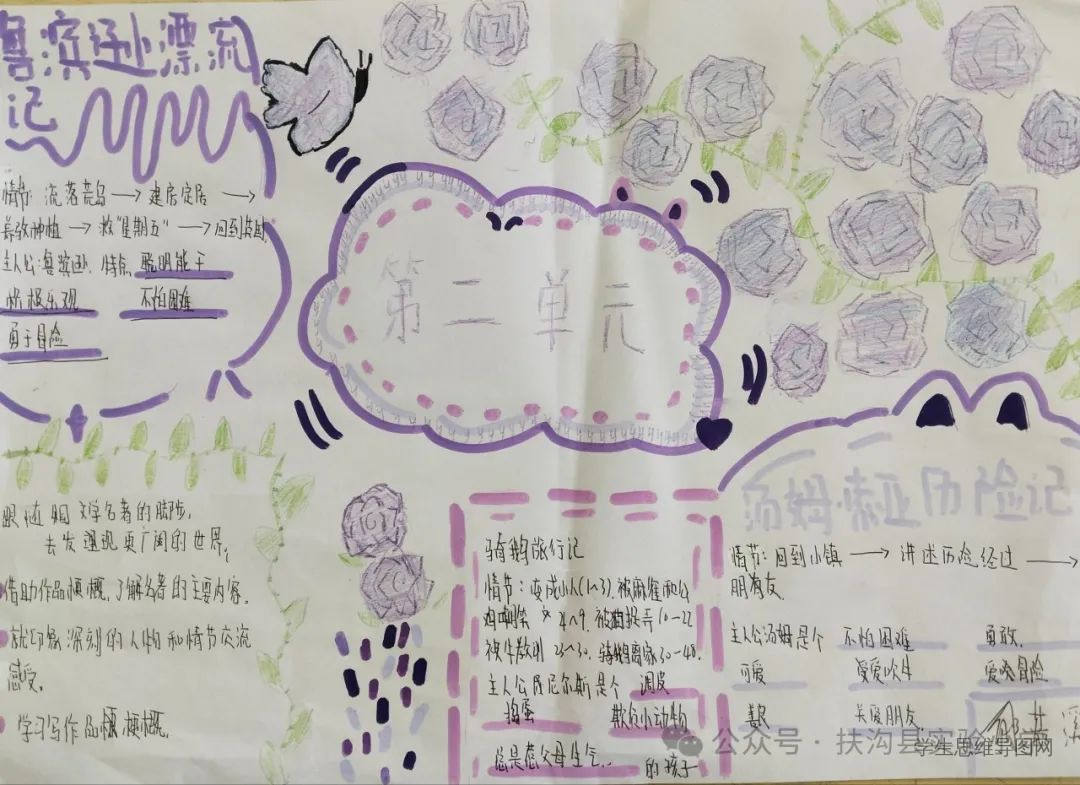 鲁滨逊漂流
记
情节：流落荒岛→建房定居→
养牧种植→救"星期五"→回到英国
主人公：鲁滨逊、特点：聪明能干
积极乐观 不怕困难
勇于冒险
第二单元
跟随 文学名著的脚步，
去发 现更广阔的世界。
借助作品梗概，了解名著的主要内容。
就印象深刻的人物和情节交流
感受。
学习写作品梗概。
骑鹅旅行记
情节：变成小人(1~3).被麻雀和公
鸡嘲笑 4~9.被猫捉弄10-22
被牛教训23~30.骑鹅离家30-48.
主人公 尼尔斯是个 调皮
捣蛋 欺负小动物
总是惹父母生气. 的孩子
汤姆·索亚历险记
情节：回到小镇→讲述历险经过→
朋 友
主人公汤姆是个 不怕困难 勇敢
可爱 爱吹牛 爱 冒险
关爱朋友
公众号·扶沟县实验
学生思维导图网